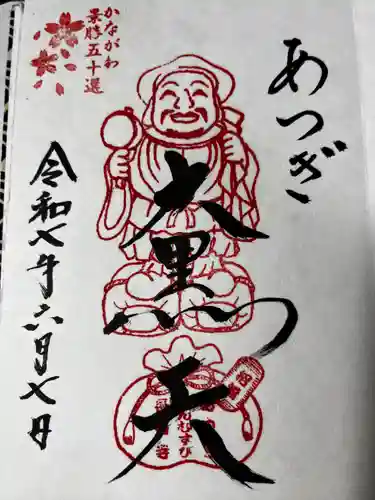 あつぎ
大黒天
かながわ
景勝五十選
令和七年六月七日
むすび